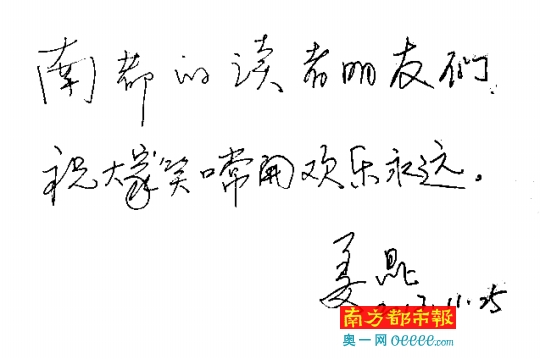 南都的读者朋友们
祝大家笑口常开欢乐永远。
姜昆
11.25
南方都市報
奥一网 oeeee.com